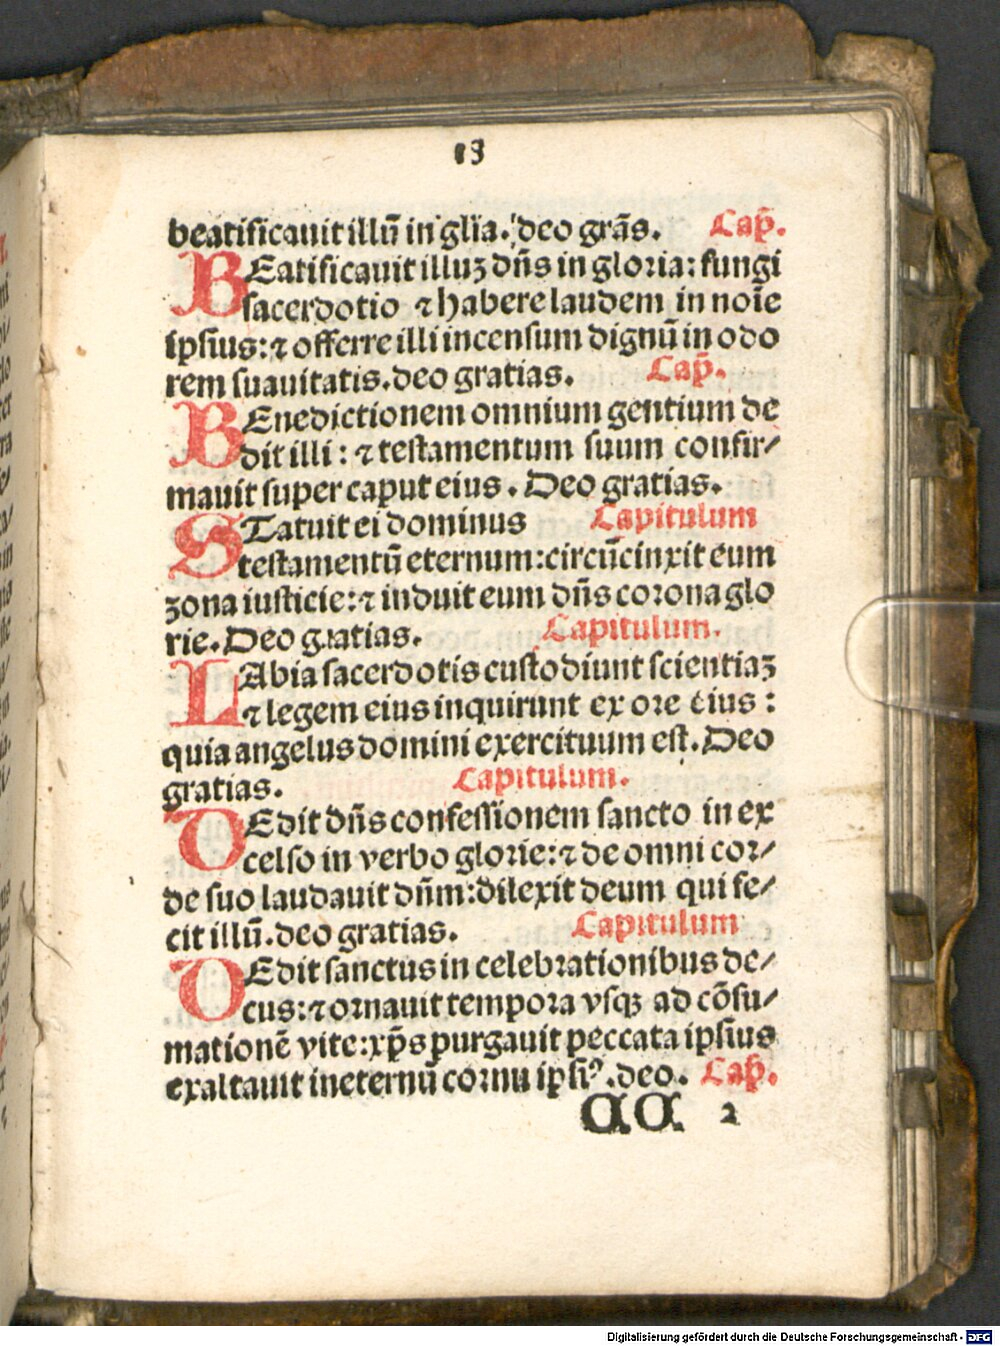 13
beatificauit illū in glīa. deo grās. Cap̄.
BEatificauit illuʒ dn̄s in gloria: fungi
sacerdotio ⁊ habere laudem in noīe
ipsius: ⁊ offerre illi incensum dignū in odo
rem suauitatis. deo gratias. Cap̄.
BEnedictionem omnium gentium de
dit illi: ⁊ testamentum suum confir⸗
mauit super caput eius. Deo gratias.
STatuit ei dominus Capitulum
testamentū eternum: circūcinxit eum
zona iusticie: ⁊ induit eum dn̄s corona glo
rie. Deo gratias. Capitulum.
LAbia sacerdotis custodiunt scientiaʒ
⁊ legem eius inquirunt ex ore eius:
quia angelus domini exercituum est. Deo
gratias. Capitulum.
DEdit dn̄s confessionem sancto in ex
celso in verbo glorie: ⁊ de omni cor⸗
de suo laudauit dn̄m: dilexit deum qui fe⸗
cit illū. deo gratias. Capitulum
DEdit sanctus in celebrationibus de⸗
cus: ⁊ ornauit tempora vsqꝫ ad cōsu⸗
mationē vite: xp̄s purgauit peccata ipsius
exaltauit ineternū cornu ipsiꝰ. deo. Cap̄.
CC 2
Digitalisierung gefördert durch die Deutsche Forschungsgemeinschaft - DFG